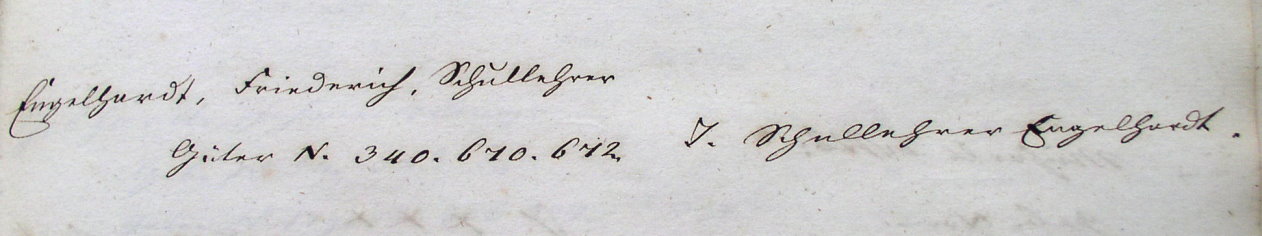 Engelhardt, Friederich, Schullehrer
Güter N. 340. 670. 672.
T. Schullehrer Engelhardt.